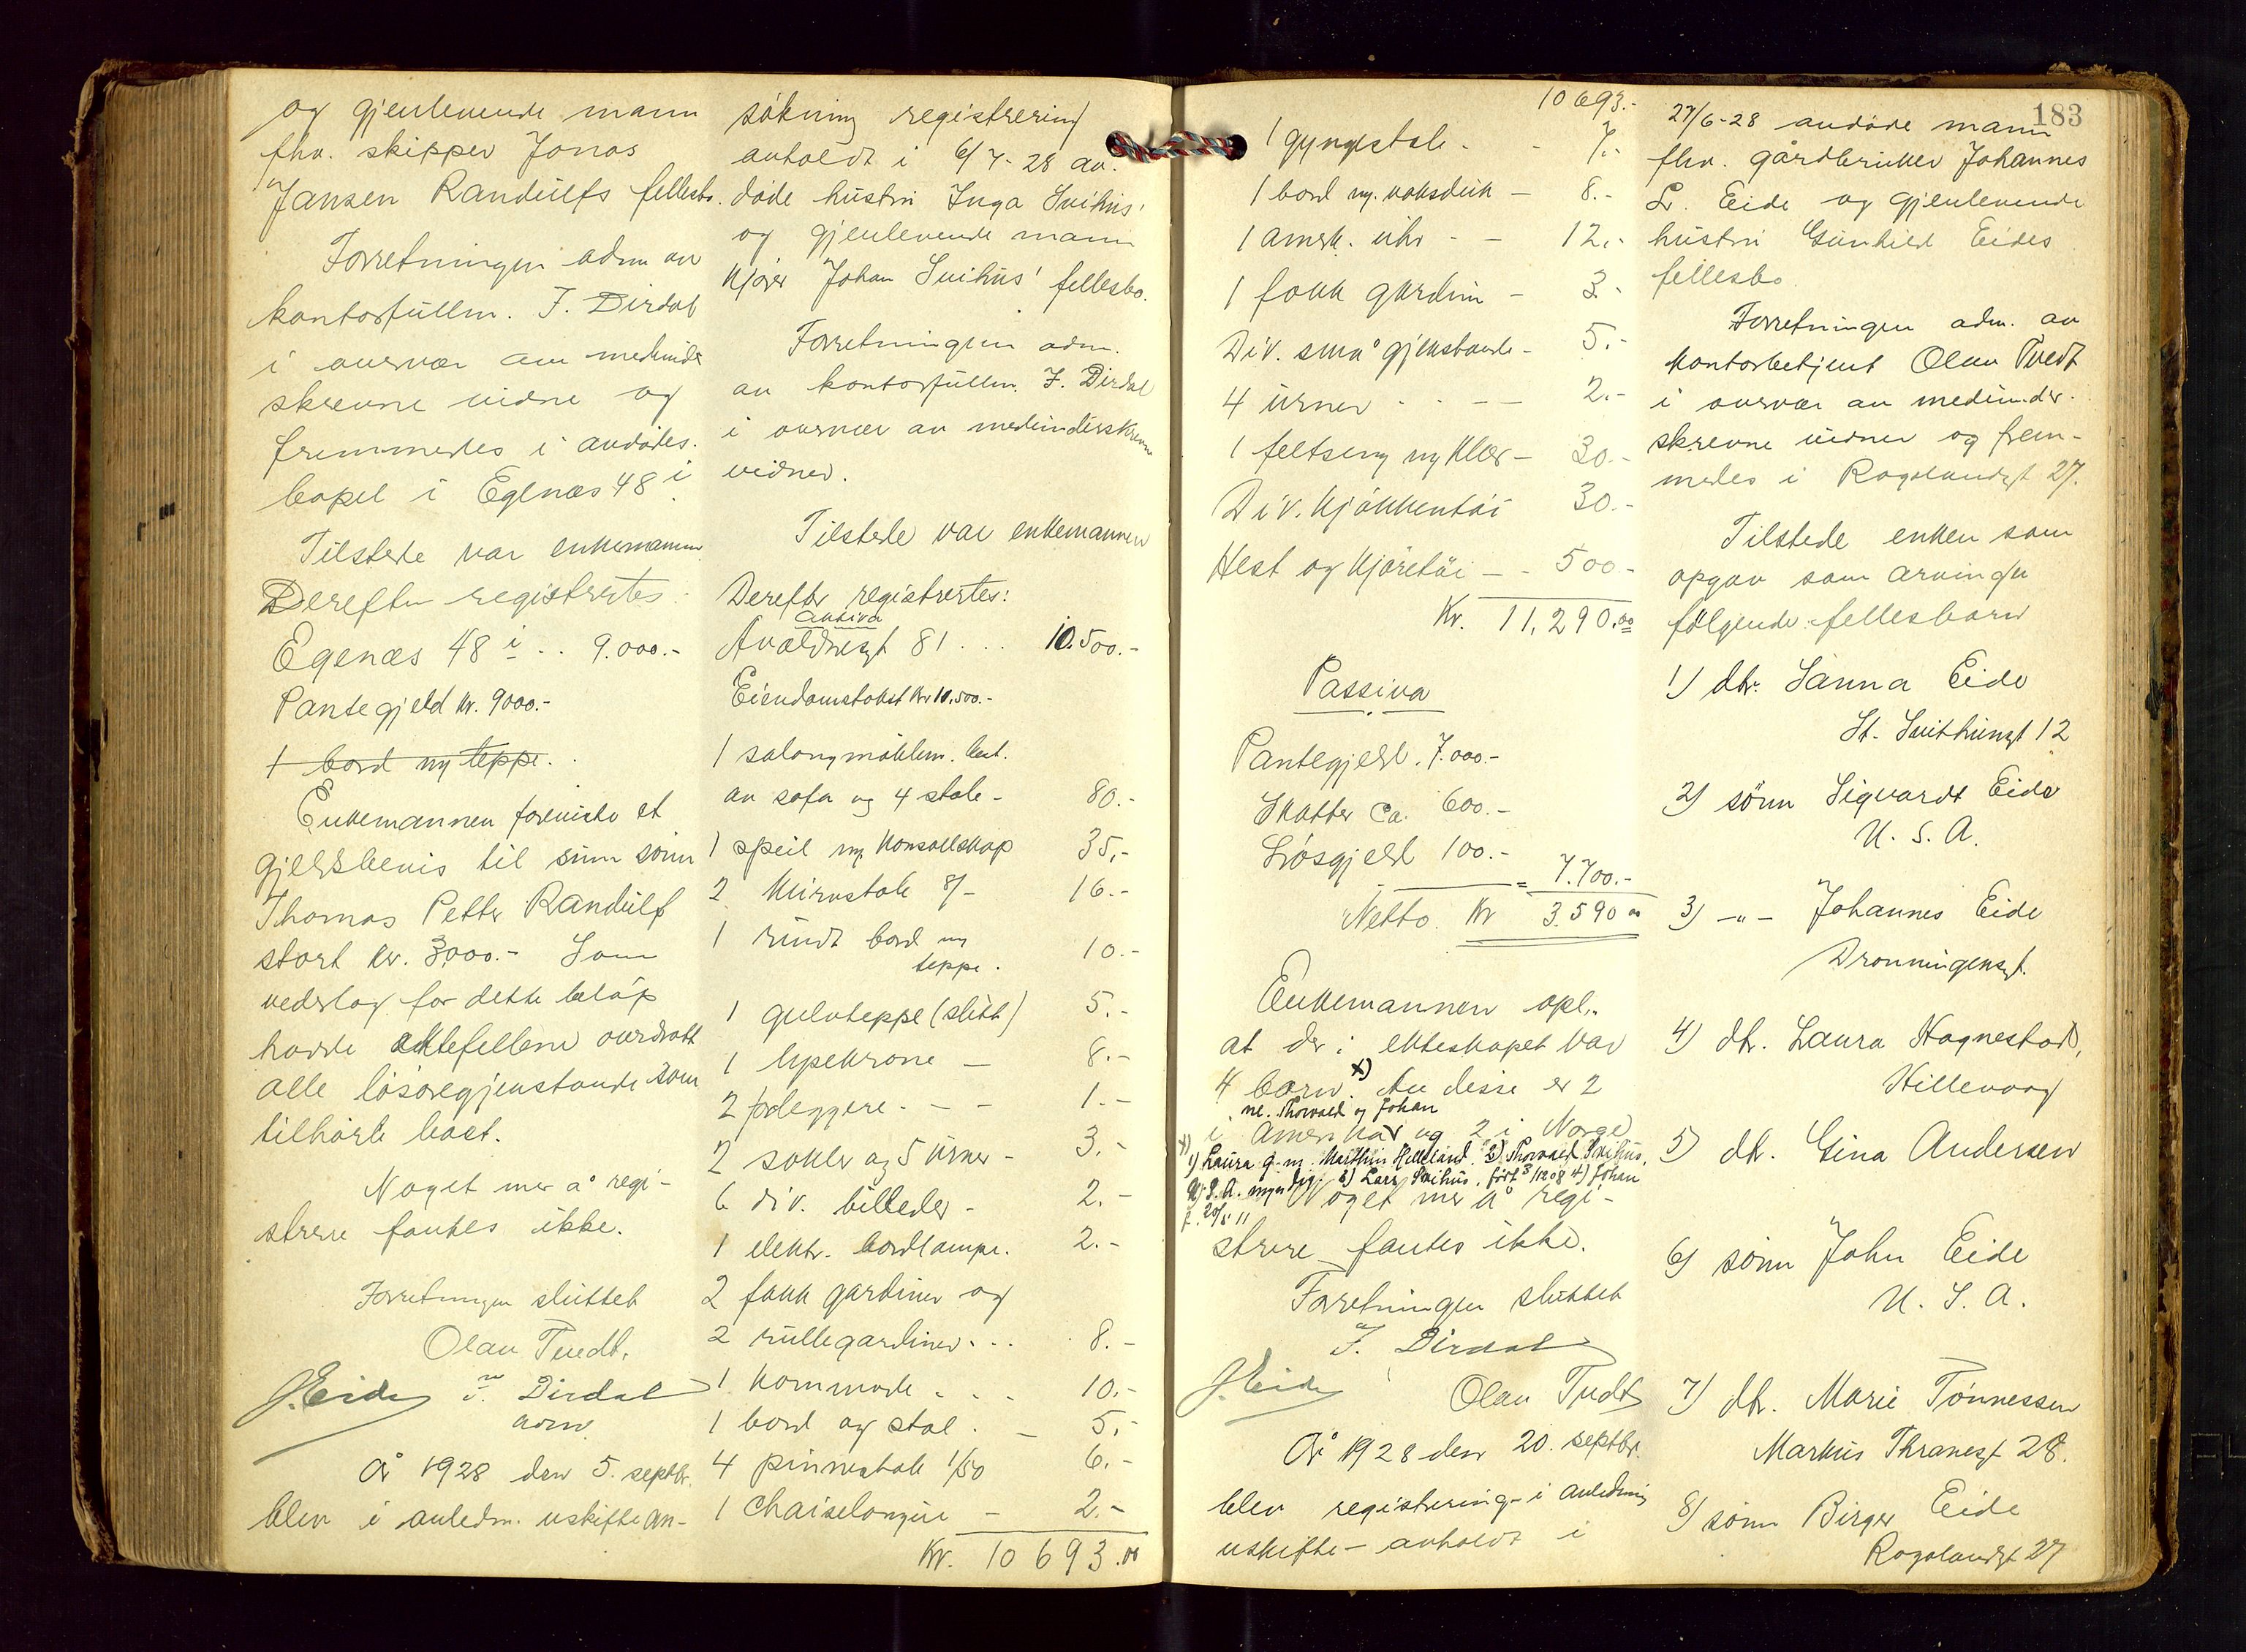 og gjenlevende mann
fhv. skipper Jonas
Jansen Randulfs fellesbo.
Forretningen adm av
kontorfullm. F. Dirdal
i overvær av medunder
skrevne vidne og
fremmedes i avdødes
bopel i Egenæs 48 i
Tilstede var enkemannen
Derefter registrertes:
Egenæs 48 i . . 9.000.-
Pantegjeld kr. 9000.-
1 bord m/ teppe.
Enkemannen foreviste et
gjeldsbevis til sinn sønn
Thomas Petter Randulf
stort kr. 3000.- Som
vederlag for dette beløp
hadde ektefellene overdratt
alle løsøregjenstande som
tilhørte boet.
Noget mer å regi-
strere fantes ikke.
Forretningen sluttet
Olav Tvedt.
J. Eide F. Dirdal
adm
År 1928 den 5. septbr.
blev i anledn. uskifte an-
søkning registrering
avholdt i 6/7-28 av-
døde hustru Inga Svihus'
og gjenlevende mann
kjører Johan Svihus' fellesbo.
Forretningen adm.
av kontorfullm. F. Dirdal
i overvær av medunderskrevne
vidner.
Tilstede var enkemannen
Derefter registrertes:
Aktiva
Avaldsnesgt 81 . . . 10.500.-
Eiendomstakst kr 10.500.-
1 salongmøblem. best.
av sofa og 4 stole - 80.-
1 speil m/ konsollskap 35.-
2 kurvstole 8/- 16.-
1 rundt bord m/
teppe. 10.-
1 gulvteppe (slitt) 5.-
1 lysekrone - 8.-
2 forleggere - - 1.-
2 sokler og 5 urner - 3.-
6 div. billeder - 2.-
1 elektr. bordlampe. 2.-
2 fakk gardiner og
2 rullegardiner . . . 8.-
1 kommode . . . 10.-
1 bord og stol . - 5.-
4 pinnestole 1/50 6.-
1 Chaiselongue - 2.-
Kr. 10693.00
183
10693.-
1 gyngestol - - 7.-
1 bord m/ voksduk - 8.-
1 amrk. uhr - - 12.-
1 fakk gardin - 3.-
Div. små gjenstande - 5.-
4 urner - - - 2.-
1 feltseng m/ klær - 30.-
Div. kjøkkentøi 30.-
Hest og kjøretøi - - 500.-
Kr. 11.290.00
Passiva
Pantegjeld . 7.000.-
Skatter ca. 600.-
Løsgjeld 100.-
= 7.700.-
Netto. Kr 3.590 00
Enkemannen opl.
at der i ekteskapet var
4 barn. x) Av disse er 2
nl. Thorvald og Johan
i Amerika og 2 i Norge
x) 1) Laura g. m. Marthin Helleland. 2) Thorvald Svihus,
U.S.A. myndig. 3) Lars Svihus, født 3/12 08 4) Johan
f. 20/5 11
Noget mer å regi-
strere fantes ikke.
Forretningen sluttet
F. Dirdal
J. Eide Olav Tvedt
År 1928 den 20. septbr.
blev registrering - i anledning
uskifte - avholdt i
27/6-28 avdøde mann
fhv. gårdbruker Johannes
L. Eide og gjenlevende
hustru Gunhild Eides
fellesbo.
Forretningen adm. av
kontorbetjent Olav Tvedt
i overvær av medunder-
skrevne vidner og frem-
medes i Rogalandsgt 27.
Tilstede enken som
opgav som arvinger
følgende fellesbarn
1) dtr. Sanna Eide
St. Svithunsgt 12
2) sønn Sigvardt Eide
U. S. A.
3) -"- Johannes Eide
Dronningensgt.
4) dtr. Laura Hognestad,
Hillevaag
5) dtr. Gina Andersen
6) sønn John Eide
U. S. A.
7) dtr. Marie Tønnessen
Markus Thranesgt 28.
8) sønn Birger Eide
Rogalandsgt 27